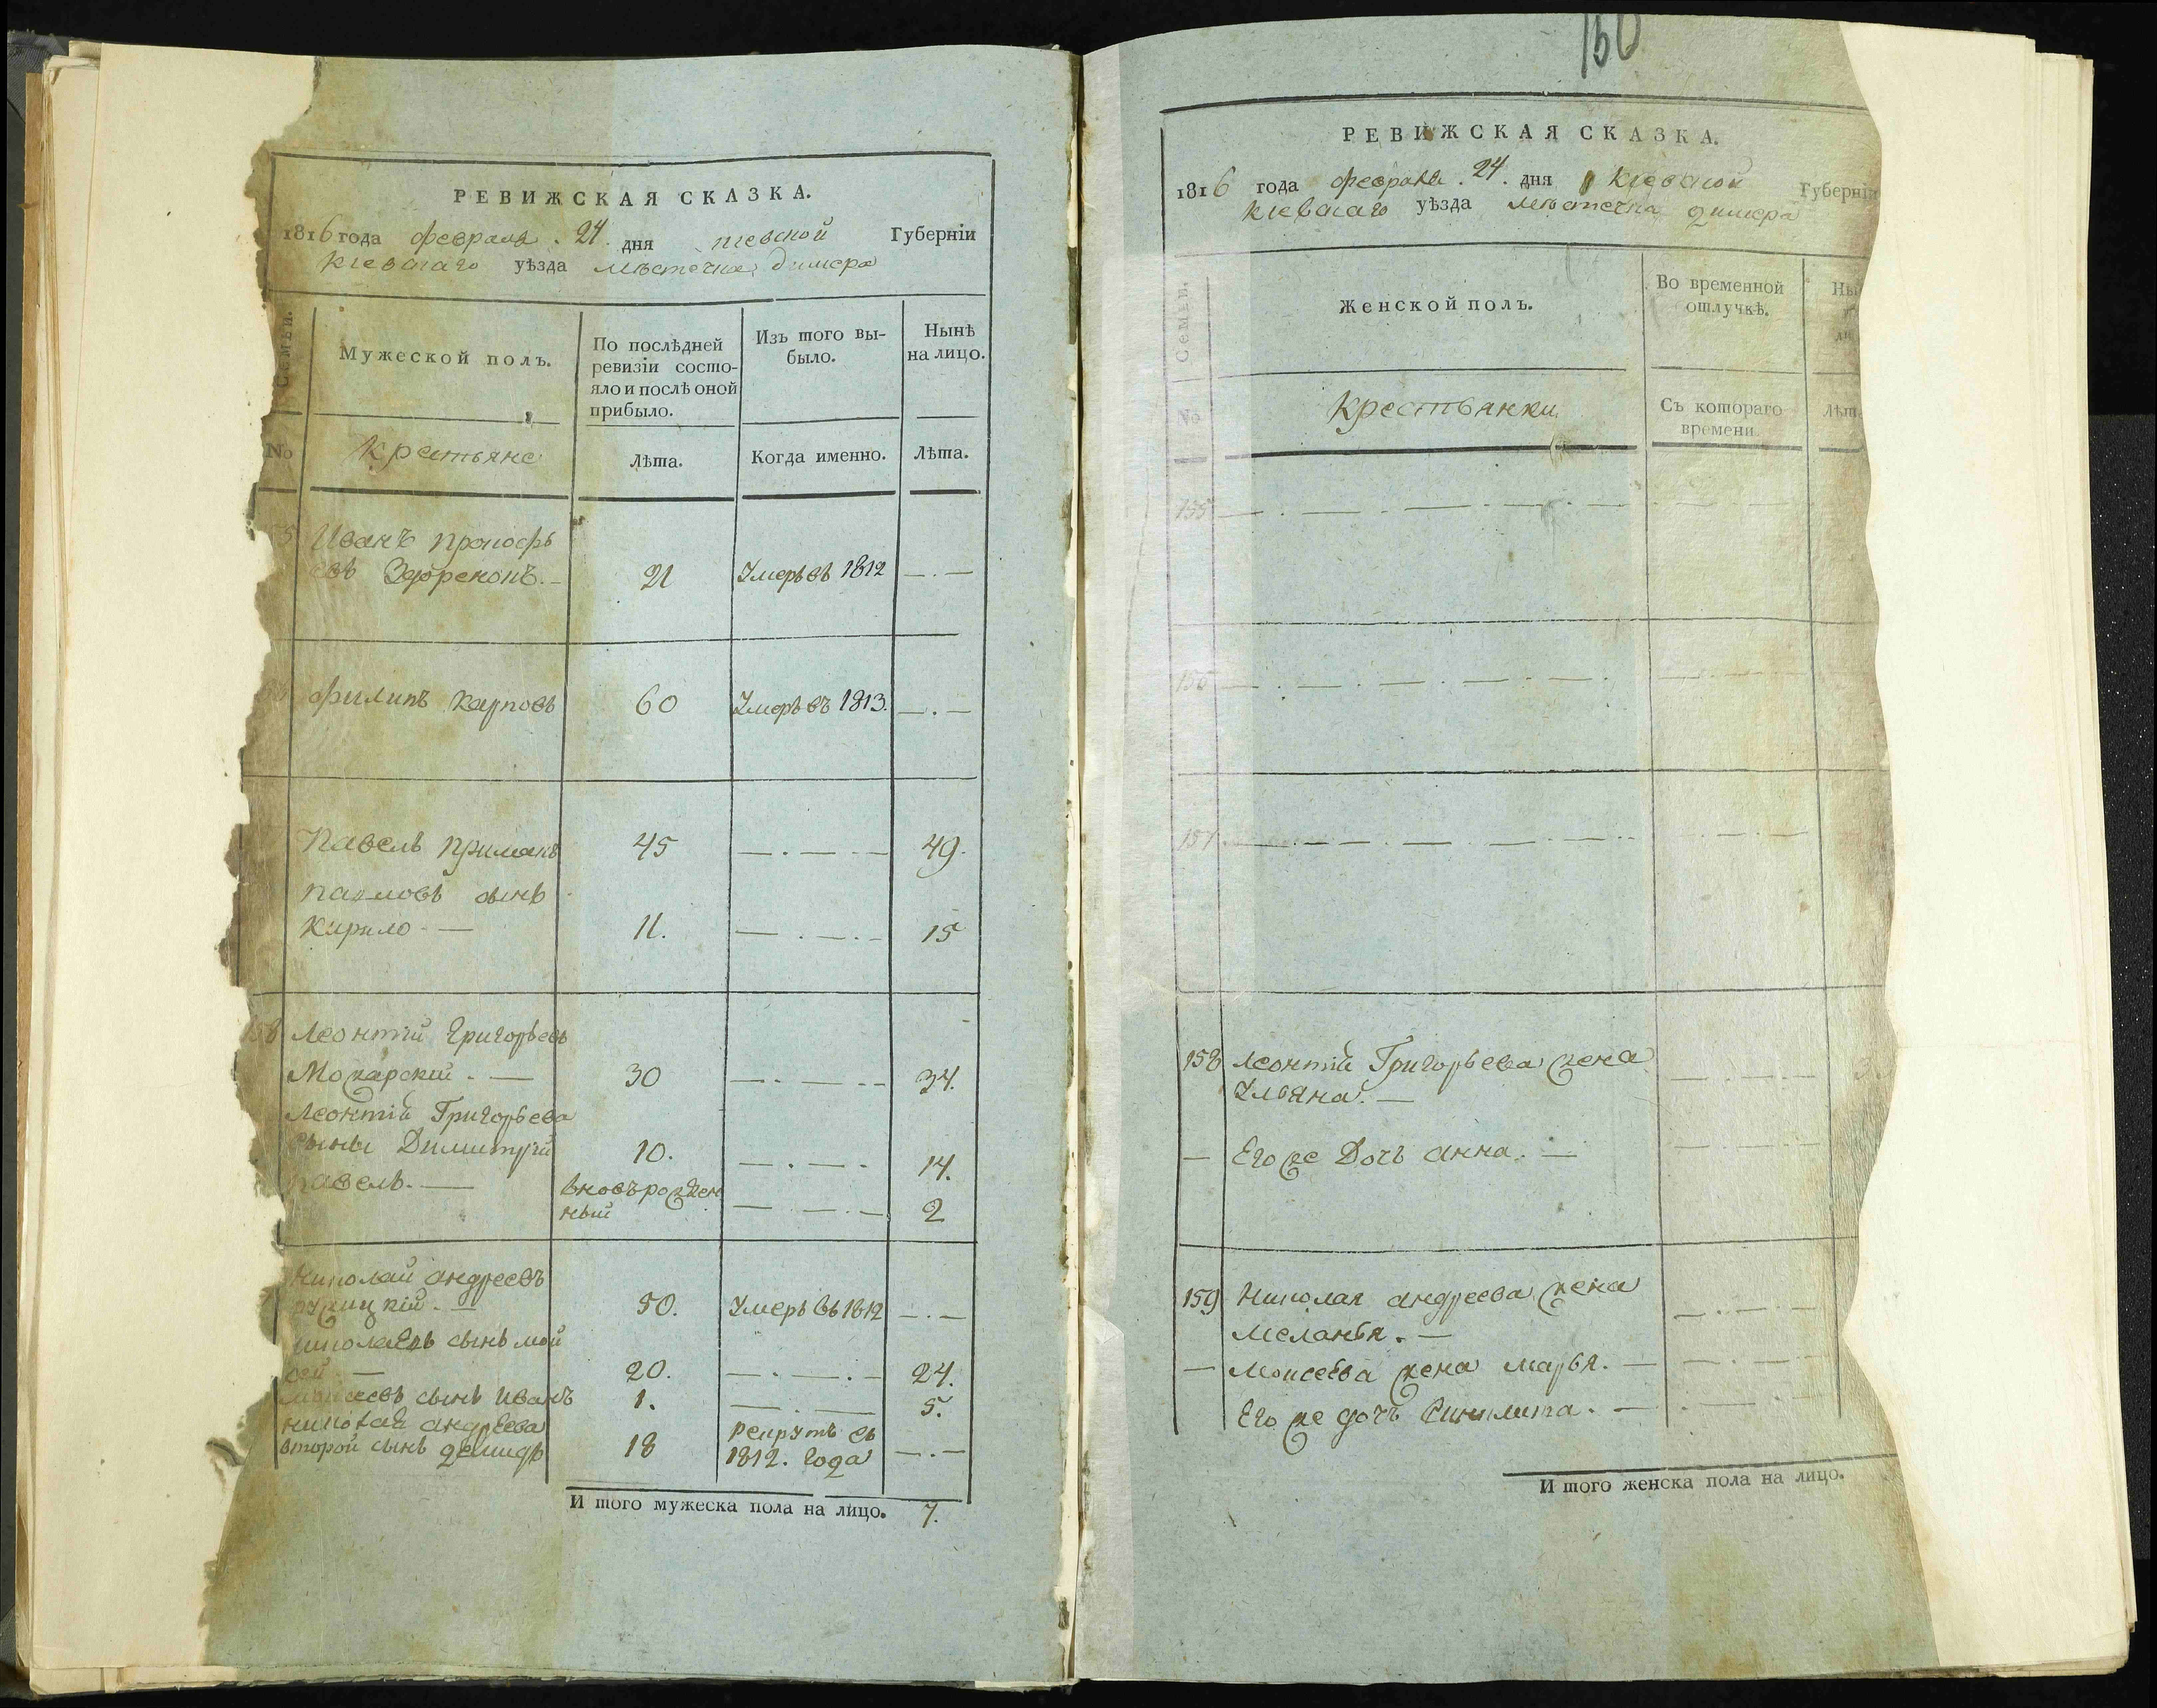 РЕВИЖСКАЯ СКАЗКА.
1816 года февраля. 24. дня Киевской Губерніи
Киевскаго уѣзда мѣстечка димера
Семьи.
Мужеской полъ.
По послѣдней
ревизіи состо-
яло и послѣ оной
прибыло.
Изъ того вы-
было.
Нынѣ
на лицо.
No
крестьяне
Лѣта.
Когда именно.
Лѣта.
Иванъ прокофь
евъ 21 Умеръ въ 1812 —.—
филипъ карповъ 60 Умеръ въ 1813. —.—
Павелъ Примакъ 45 —.—.— 49.
павловъ сынъ
Кирило - — 11. —.—.- 15
158 Леонтій Григорьевъ
30 —.—.-- 34.
Леонтій Григорьева
сыны Димитрій 10. —.—. 14.
павелъ. — вновьрожден
ный —.—.— 2
Николай андреевъ
50. Умеръ въ 1812 —.—
николаевъ сынъ мой
сей — 20. —.—.- 24.
моисеевъ сынъ иванъ 1. —.— 5.
николая андреева рекрутъ съ
второй сынъ демидъ 18 1812. года —.—
И того мужеска пола на лицо. 7.
150
РЕВИЖСКАЯ СКАЗКА.
1816 года февраля. 24. дня Киевской Губерніи
киевскаго уѣзда мѣстечка димера
Семьи.
Женской полъ.
Во временной
отлучкѣ.
Ны
No
крестьянки
Съ котораго
времени.
Лѣт
155 —.—.—.—.—.—
156 —.—.—.—.—.
157 —.—.—.—.—
158 леонтій Григорьева жена
Ульяна. —
— Его же Дочь анна. —
159 Николая андреева жена
меланья. —
— Моисеева жена марья. —
Его же дочь —
И того женска пола на лицо.